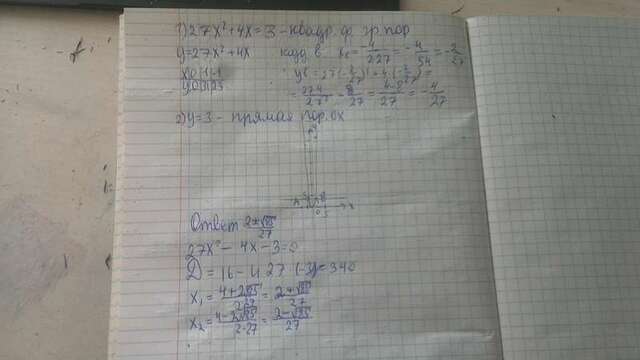 1) 27x² + 4x = 3 - квадр. ф. гр. пар
y = 27x² + 4x коорд в x₀ = -4/2·27 = -4/54 = -2/27
x 0 1 -1
y 0 31 23
= 27·4/27² - 8/27 = 4-8/27 = -4/27
2) y = 3 - прямая пар. ох
Ответ 2±√85/27
27x² - 4x - 3 = 0
D = 16 - 4 27 (-3) = 340
x₁ = 4+2√85/2·27 = 2+√85/27
x₂ = 4-2√85/2·27 = 2-√85/27